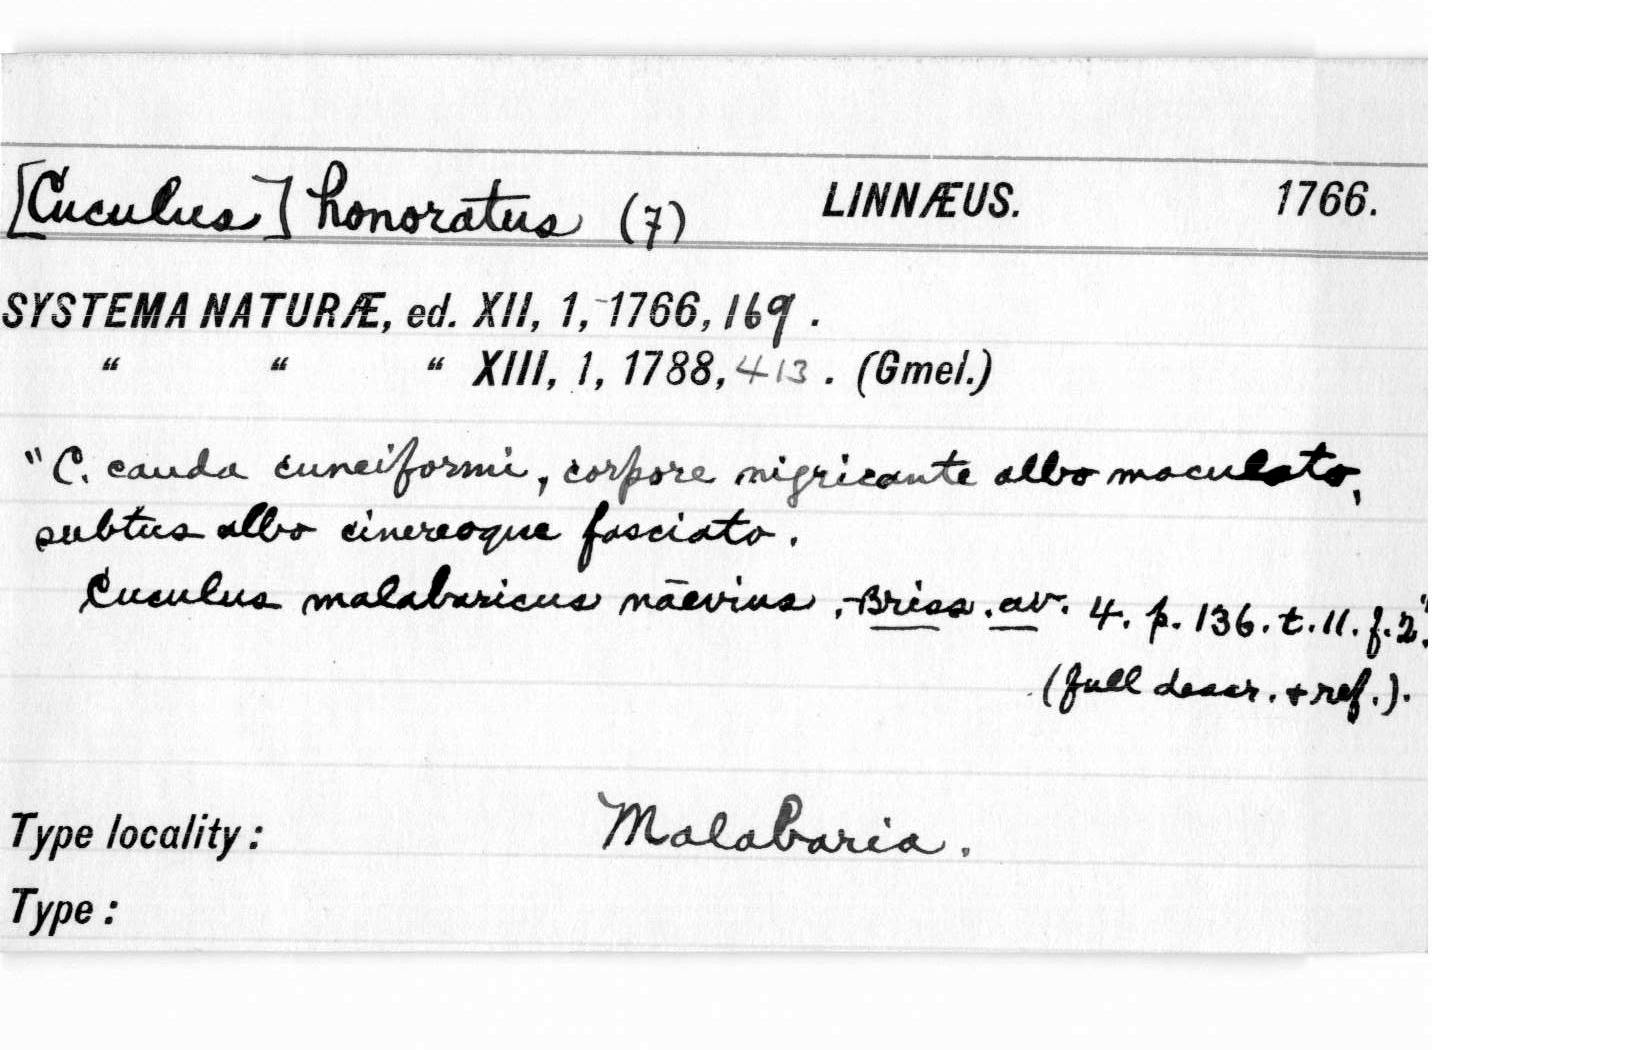 [Cuculus] honoratus (7) LINNÆUS. 1766.
SYSTEMA NATURÆ, ed. XII, 1, 1766, 169.
“ “ “ XIII, 1, 1788, 413. (Gmel.)
"C. cauda cuneiformi, corpore nigricante albo maculato,
subtus albo cinereoque fasciato.
Cuculus malabaricus nāevius, Briss. av. 4. p. 136. t. 11. f. 2".
(full descr. + ref.).
Type locality: Malabaria.
Type: